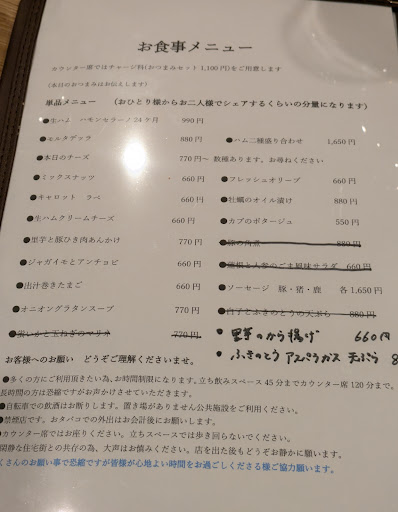 お食事メニュー
カウンター席ではチャージ料(おつまみセット 1,100円)をご用意します
(本日のおつまみはお伝えします)
単品メニュー (おひとり様からお二人様でシェアするくらいの分量になります)
●生ハム ハモンセラーノ24ケ月 990円
●モルタデッラ 880円
●ハム二種盛り合わせ 1,650円
●本日のチーズ 770円～ 数種あります、お尋ねください
●ミックスナッツ 660円
●フレッシュオリーブ 660円
●キャロット ラペ 660円
●牡蠣のオイル漬け 880円
●生ハムクリームチーズ 660円
●カブのポタージュ 550円
●里芋と豚ひき肉あんかけ 770円
●豚の角煮 880円
●ジャガイモとアンチョビ 660円
●蓮根と人参のごま風味サラダ 660円
●出汁巻きたまご 660円
●ソーセージ 豚・猪・鹿 各1,650円
●オニオングラタンスープ 770円
●白子とふきのとうの天ぷら 880円
●蛍いかと玉ねぎのマリネ 770円
● 里芋のから揚げ 660円
● ふきのとう アスパラガス 天ぷら 8
お客様へのお願い どうぞご理解くださいませ。
●多くの方にご利用頂きたい為、お時間制限になります。立ち飲みスペース45分までカウンター席120分まで。
長時間の方は恐縮ですがお声かけさせていただきます。
●自転車での飲酒はお断りします。置き場がありません公共施設をご利用ください。
●禁煙店です。おタバコでの外出はお会計後にお願いします。
●カウンター席ではお座りください。立ちスペースでは歩き回らないでください。
閑静な住宅街との共存の為、大声はお慎みください。店を出た後もどうぞお静かに願います。
くさんのお願い事で恐縮ですが皆様が心地よい時間をお過ごしくださる様ご協力願います。